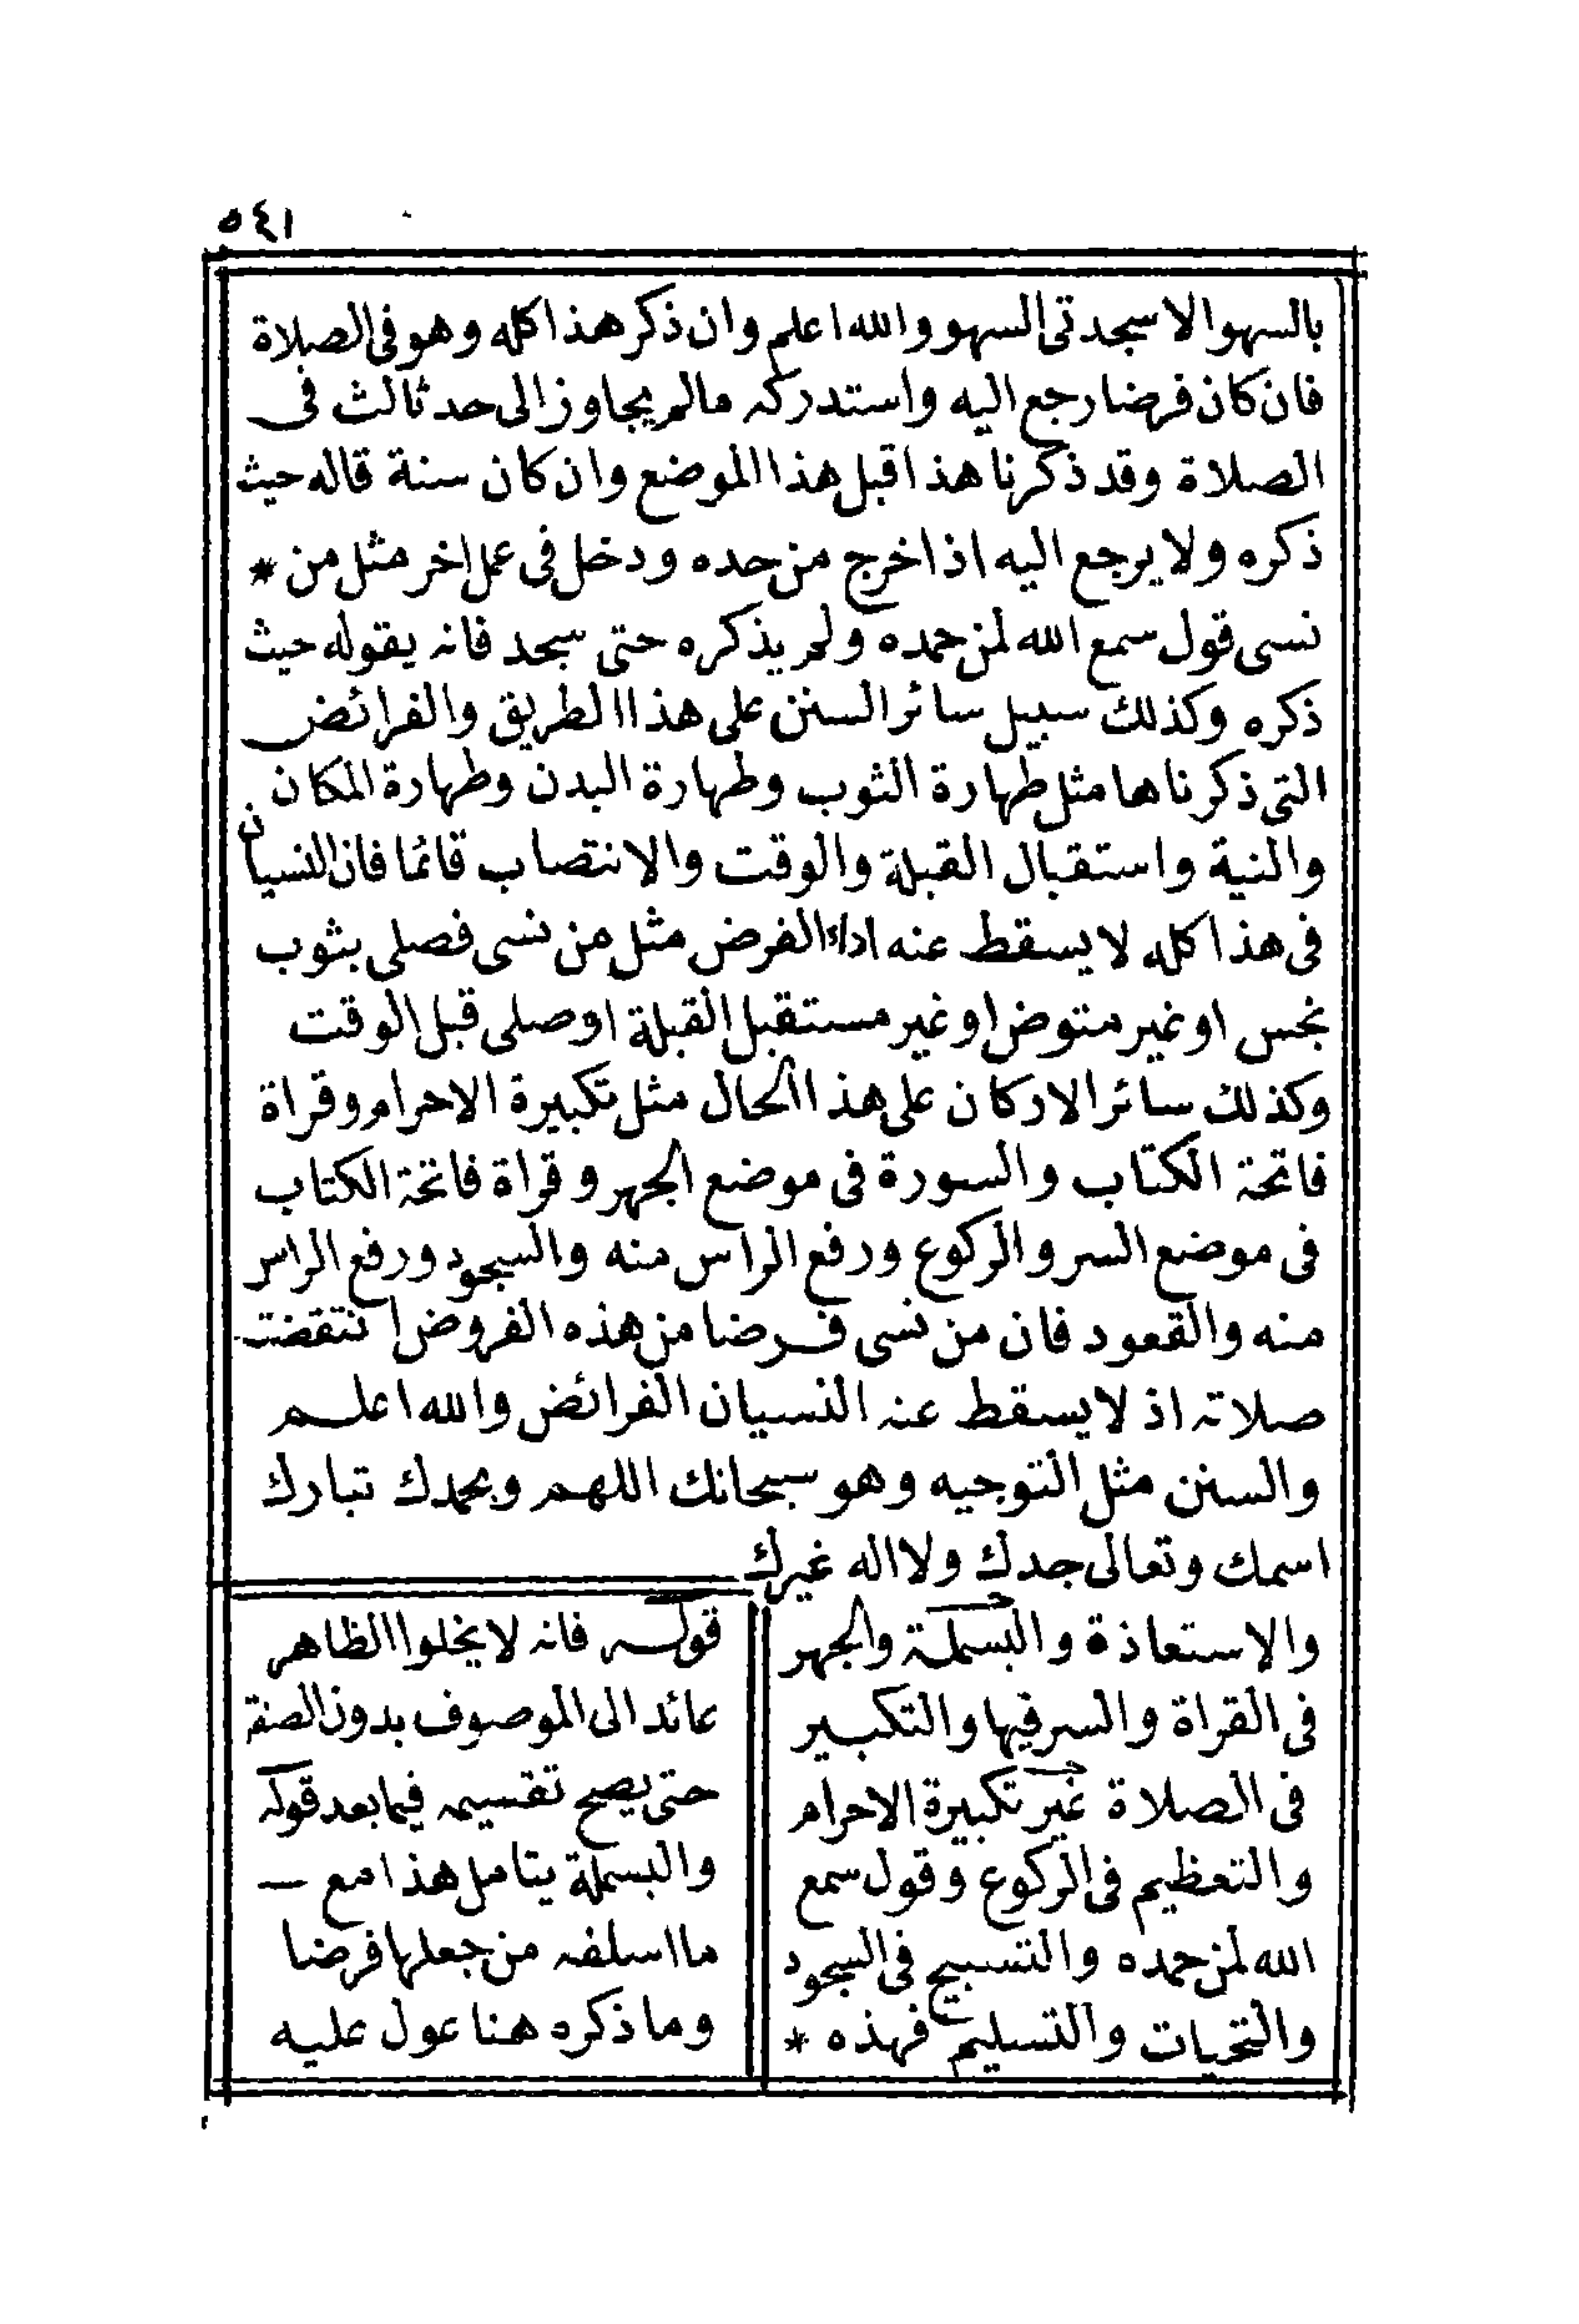 ٥٤١
بالسهو الا سجدتى السهو والله اعلم وان ذكر هذا كله وهو فى الصلاة
فان كان فرضا رجع اليه واستدركه مالم يجاوز الى حد ثالث فى
الصلاة وقد ذكرنا هذا قبل هذا الموضع وان كان سنة قاله حيث
ذكره ولا يرجع اليه اذا خرج من حده ودخل فى عمل اخر مثل من *
نسى قول سمع الله لمن حمده ولم يذكره حتى سجد فانه يقوله حيث
ذكره وكذلك سبيل سائر السنن على هذا الطريق والفرائض
التى ذكرناها مثل طهارة الثوب وطهارة البدن وطهارة المكان
والنية واستقبال القبلة والوقت والانتصاب قائما فان النسيان
فى هذا كله لا يسقط عنه اداء الفرض مثل من نسى فصلى بثوب
نجس او غير متوض او غير مستقبل القبلة او صلى قبل الوقت
وكذلك سائر الاركان على هذا الحال مثل تكبيرة الاحرام وقراة
فاتحة الكتاب والسورة فى موضع الجهر وقراة فاتحة الكتاب
فى موضع السر والركوع ورفع الراس منه والسجود ورفع الراس
منه والقعود فان من نسى فرضا من هذه الفروض انتقضت
صلاته اذ لا يسقط عنه النسيان الفرائض والله اعلم
والسنن مثل التوجيه وهو سبحانك اللهم وبحمدك تبارك
اسمك وتعالى جدك ولا اله غيرك
والاستعاذة والبسملة والجهر
فى القراة والسر فيها والتكبير
فى الصلاة غير تكبيرة الاحرام
والتعظيم فى الركوع وقول سمع
الله لمن حمده والتسبيح فى السجود
والتحيات والتسليم فهذه *
قوله فانه لا يخلوا الظاهر
عائد الى الموصوف بدون الصفة
حتى يصح تقسيمه فيما بعد قوله
والبسملة يتامل هذا مع
ما اسلفه من جعلها فرضا
وما ذكره هنا عول عليه